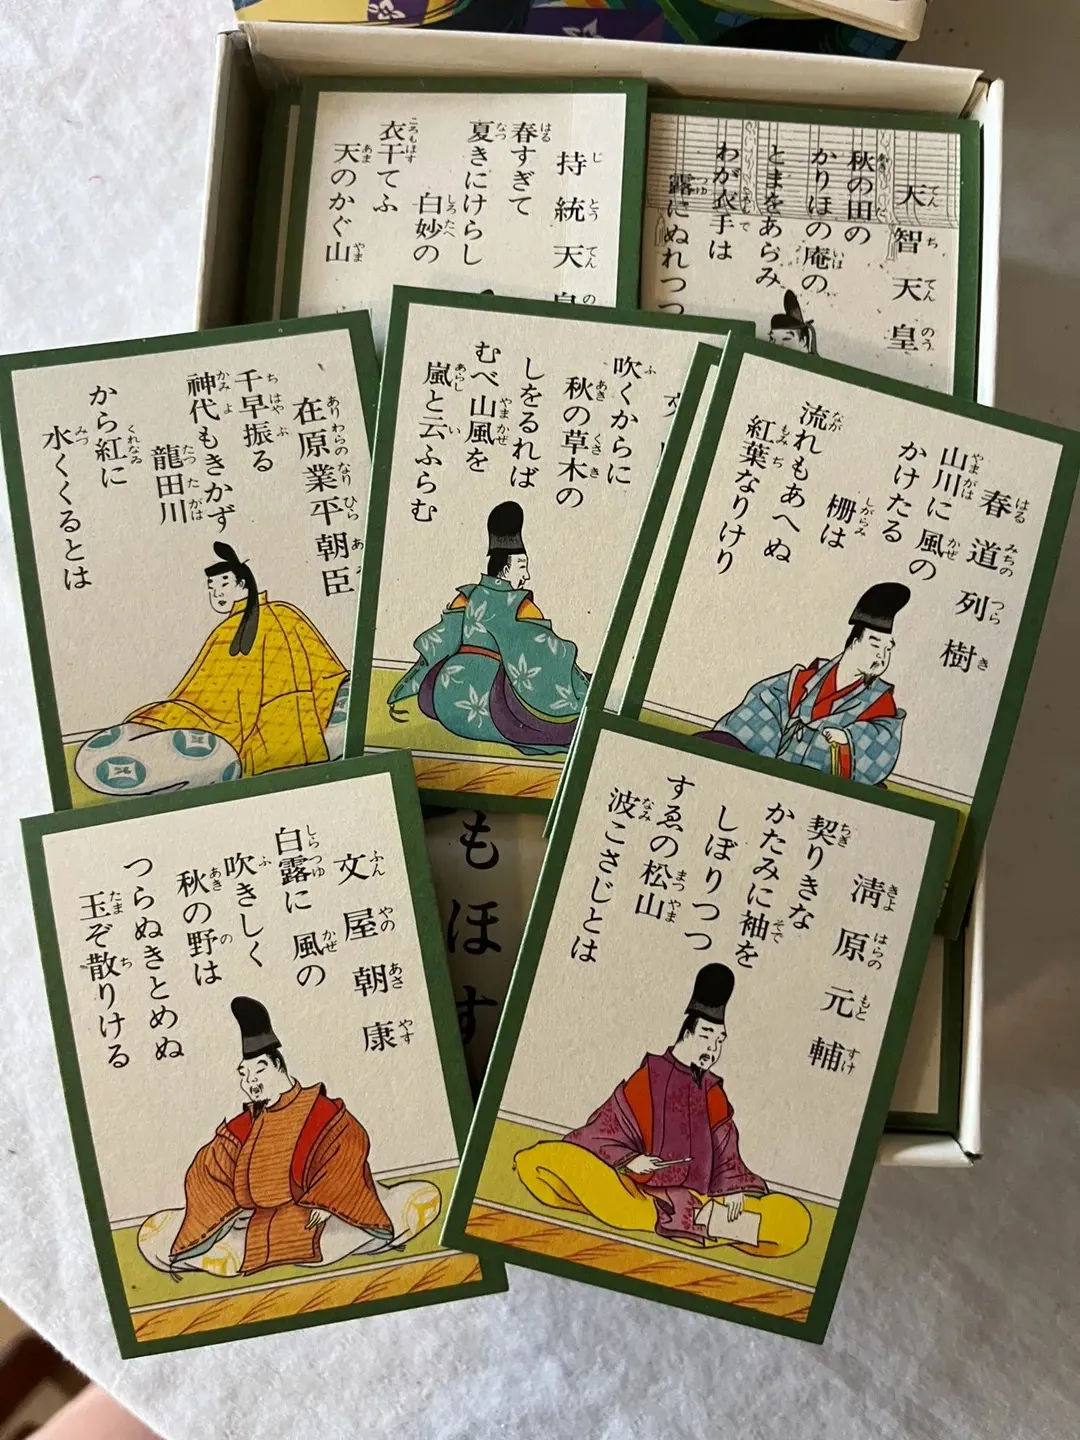 持統天皇
春すぎて
夏きにけらし
白妙の
衣干てふ
天のかぐ山
天智天皇
秋の田の
かりほの庵の
とまをあらみ
わが衣手は
露にぬれつつ
在原業平朝臣
千早振る
神代もきかず
龍田川
から紅に
水くくるとは
文
吹くからに
秋の草木の
しをるれば
むべ山風を
嵐と云ふらむ
春道列樹
山川に風の
かけたる
柵は
流れもあへぬ
紅葉なりけり
文屋朝康
白露に風の
吹きしく
秋の野は
つらぬきとめぬ
玉ぞ散りける
清原元輔
契りきな
かたみに袖を
しぼりつつ
すゑの松山
波こさじとは
もほす